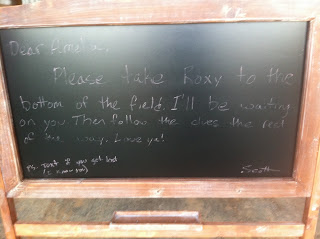 Dear Amelia,
Please take Roxy to the
bottom of the field. I'll be waiting
on you. Then follow the clues the rest
of the way. Love ya!
P.S. Text if you get lost
(I know you)
Scott